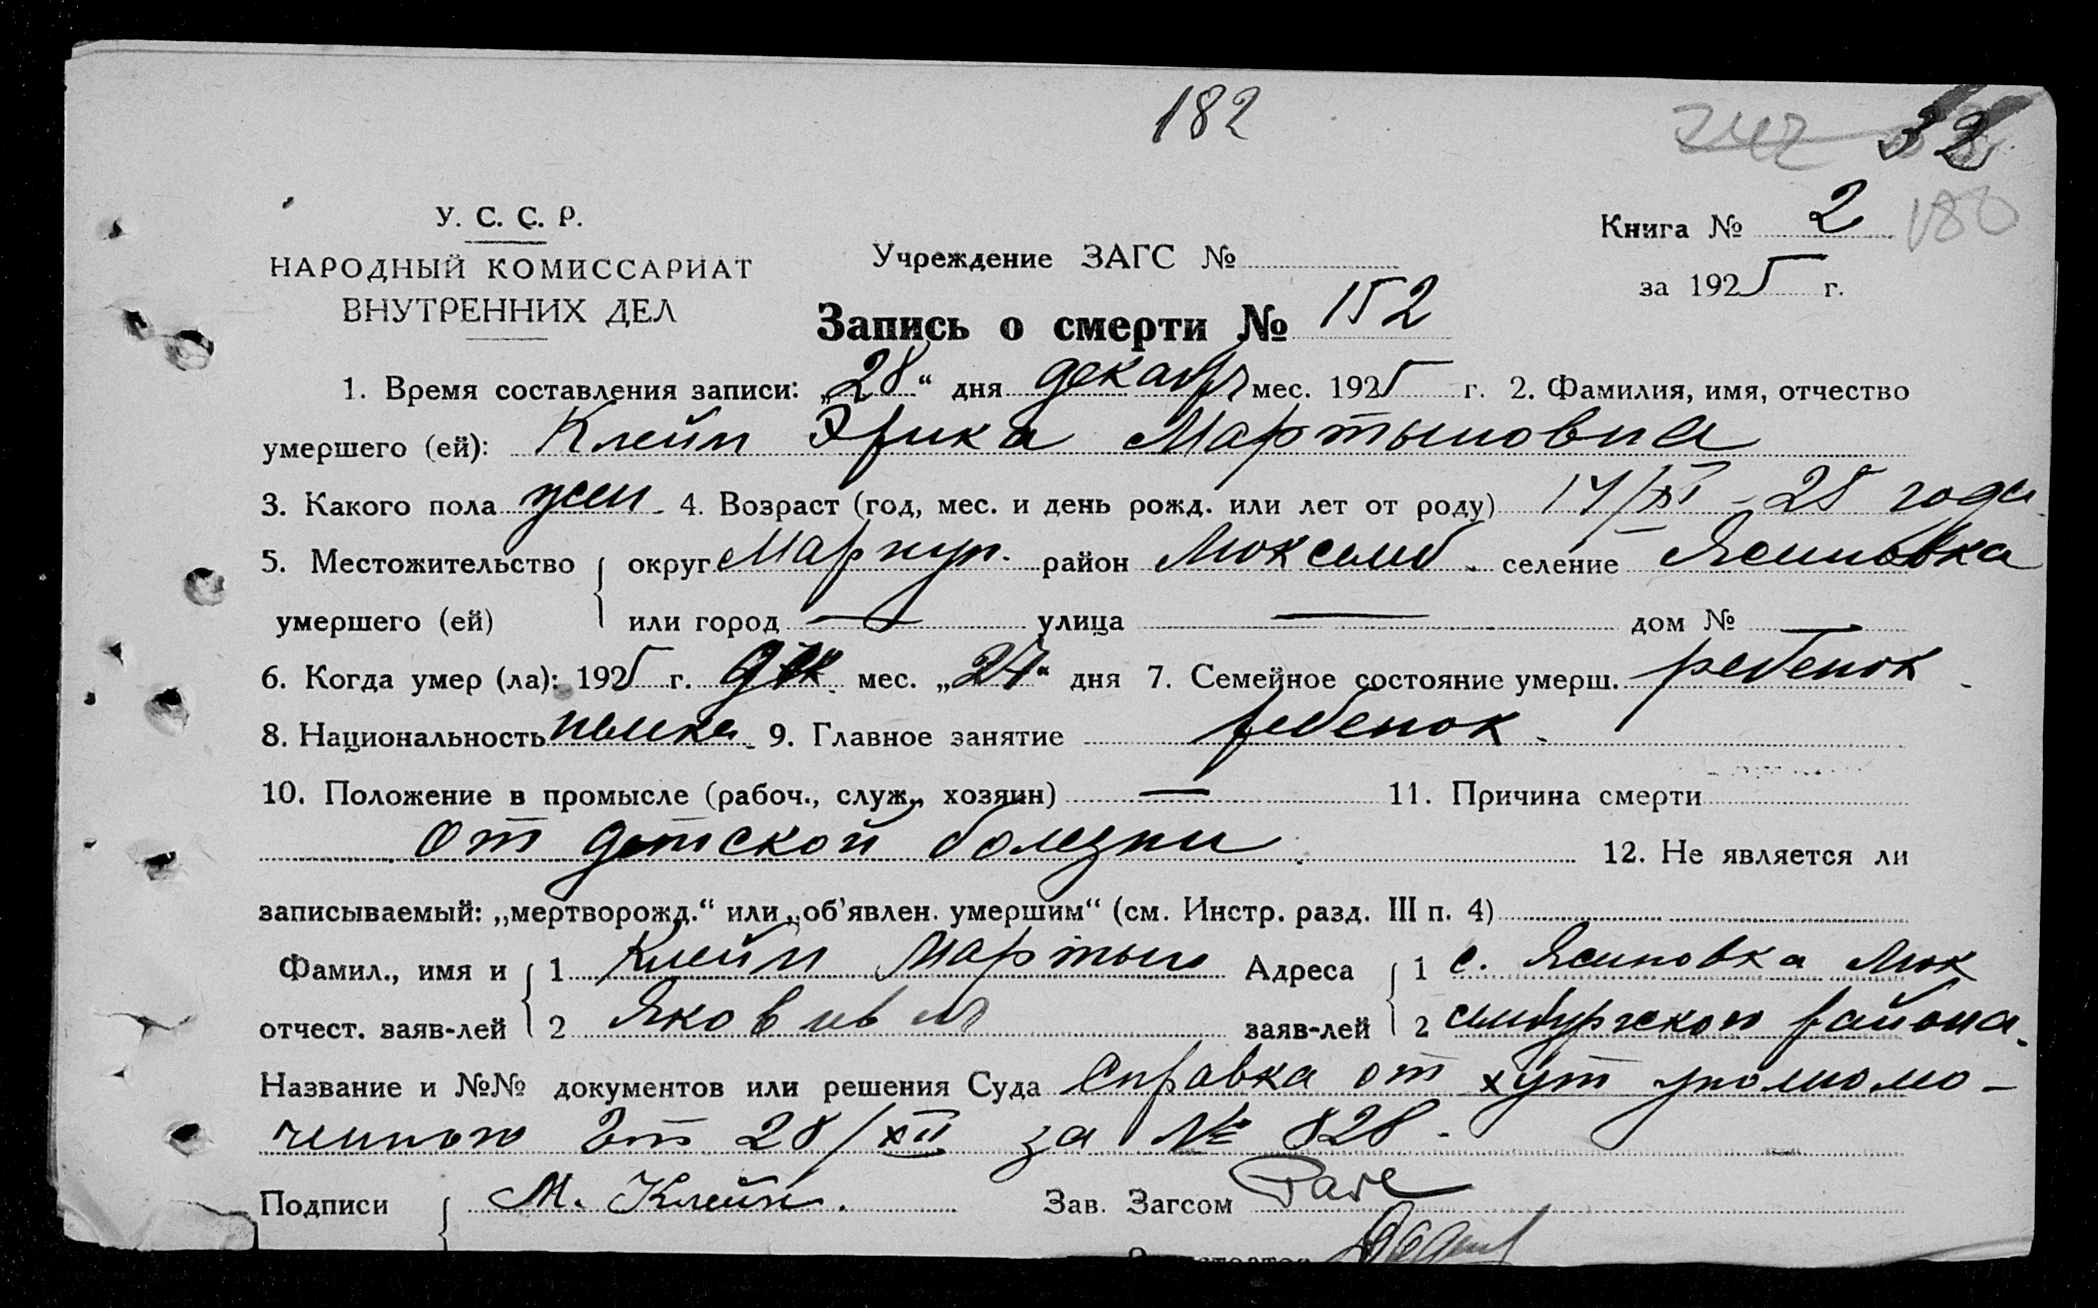 182
242 32
У. С. С. Р.
НАРОДНЫЙ КОМИССАРИАТ
ВНУТРЕННИХ ДЕЛ
Учреждение ЗАГС №
Книга № 2 180
за 1925 г.
Запись о смерти № 152
1. Время составления записи: „28“ дня декабря мес. 1925 г. 2. Фамилия, имя, отчество
умершего (ей): Клейн Эрика Мартыновна
3. Какого пола жен. 4. Возраст (год, мес. и день рожд. или лет от роду) - 25 года
5. Местожительство округ Мариуп. район Люксемб. селение Ясиновка
умершего (ей) или город — улица — дом № —
6. Когда умер (ла): 1925 г. дек. мес. „27“ дня 7. Семейное состояние умерш. ребенок
8. Национальность немка. 9. Главное занятие ребенок.
10. Положение в промысле (рабоч., служ., хозяин) — 11. Причина смерти
от детской болезни. 12. Не является ли
записываемый: „мертворожд.“ или „об’явлен. умершим“ (см. Инстр. разд. III п. 4)
Фамил., имя и 1 Клейн Мартын Адреса 1 с. Ясиновка Люк
отчест. заяв-лей 2 заяв-лей 2 сембургского района.
Название и №№ документов или решения Суда Справка от хут уполномо-
ченного от 28/XII за № 828.
Подписи М. Клейн. Зав. Загсом